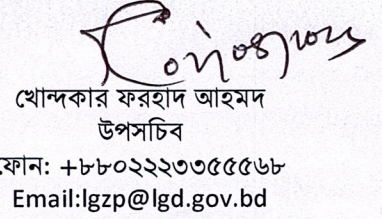 খোন্দকার ফরহাদ আহমদ
উপসচিব
ফোন: +৮৮০২২২৩৩৫৫৫৬৮
Email:lgzp@lgd.gov.bd